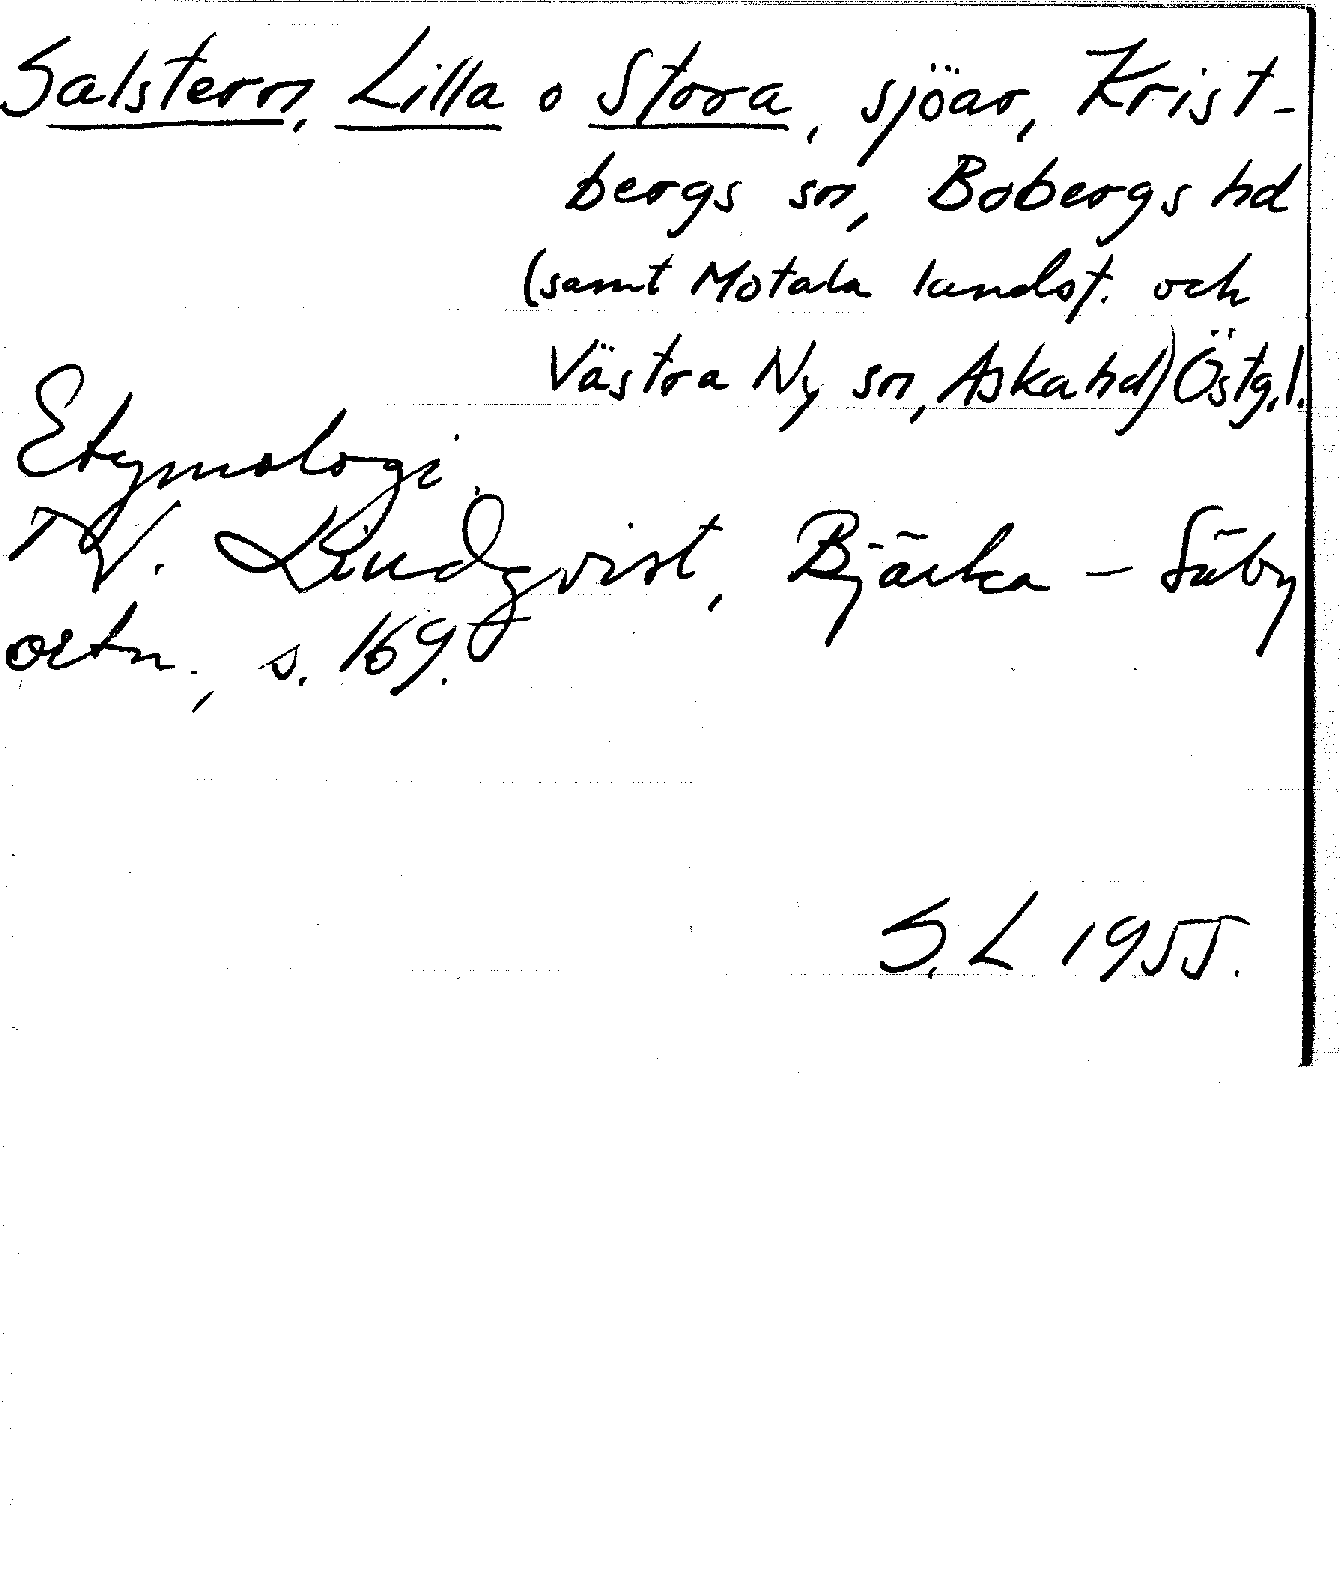 Salstern, Lilla o Stora, sjöar, Krist-
bergs sn, Bobergs hd
(samt Motala landsf. och
Västra Ny sn, Aska hd) Östg.l.
Etymologi
I V. Lindqvist, Bjärka-Säby
ortn., s. 169.
S. L 1955.